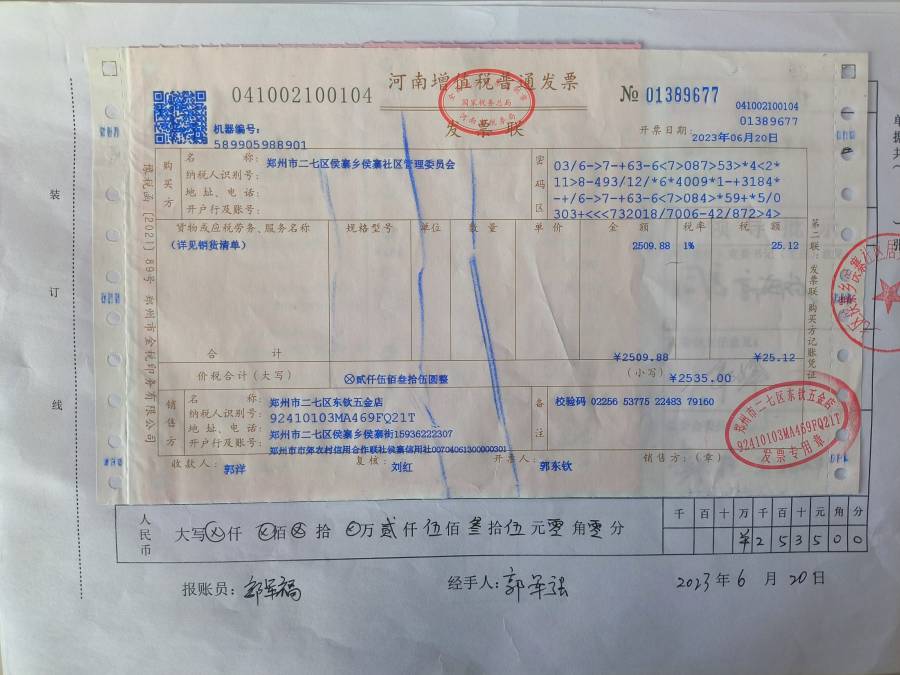 河南增值税普通发票
041002100104
№ 01389677
041002100104
01389677
国家税务总局
发票联
机器编号:
589905988901
开票日期:
2023年06月20日
购买方
名称:
郑州市二七区侯寨乡侯寨社区管理委员会
纳税人识别号:
地址、电话:
开户行及账号:
密码区
03/6->7-+63-6<7>087>53>*4<2*
11>8-493/12/*6*4009*1-+3184*
-+/6->7-+63-6<7>084>*59+*5/0
303+<<<732018/7006-42/872>4>
货物或应税劳务、服务名称 规格型号 单位 数量 单价 金额 税率 税额
(详见销货清单) 2509.88 1% 25.12
合计 ¥2509.88 ¥25.12
价税合计(大写) ⊗贰仟伍佰叁拾伍圆整 (小写) ¥2535.00
销售方
名称:
郑州市二七区东钦五金店
纳税人识别号:
92410103MA469FQ21T
地址、电话:
郑州市二七区侯寨乡侯寨街15936222307
开户行及账号:
郑州市市郊农村信用合作联社侯寨信用社00704061300000301
备注
校验码 02256 53775 22483 79160
收款人: 郭祥 复核: 刘红 开票人: 郭东钦 销售方:(章)
郑州市二七区东钦五金店
92410103MA469FQ21T
发票专用章
第二联:发票联 购买方记账凭证
[2021]89号 郑州市金税印务有限公司
装
订
线
人民币
大写ⓧ仟ⓧ佰ⓧ拾ⓧ万贰仟伍佰叁拾伍元零角零分
千 百 十 万 千 百 十 元 角 分
¥ 2 5 3 5 0 0
报账员:
经手人: 郭军强
2023年6月20日